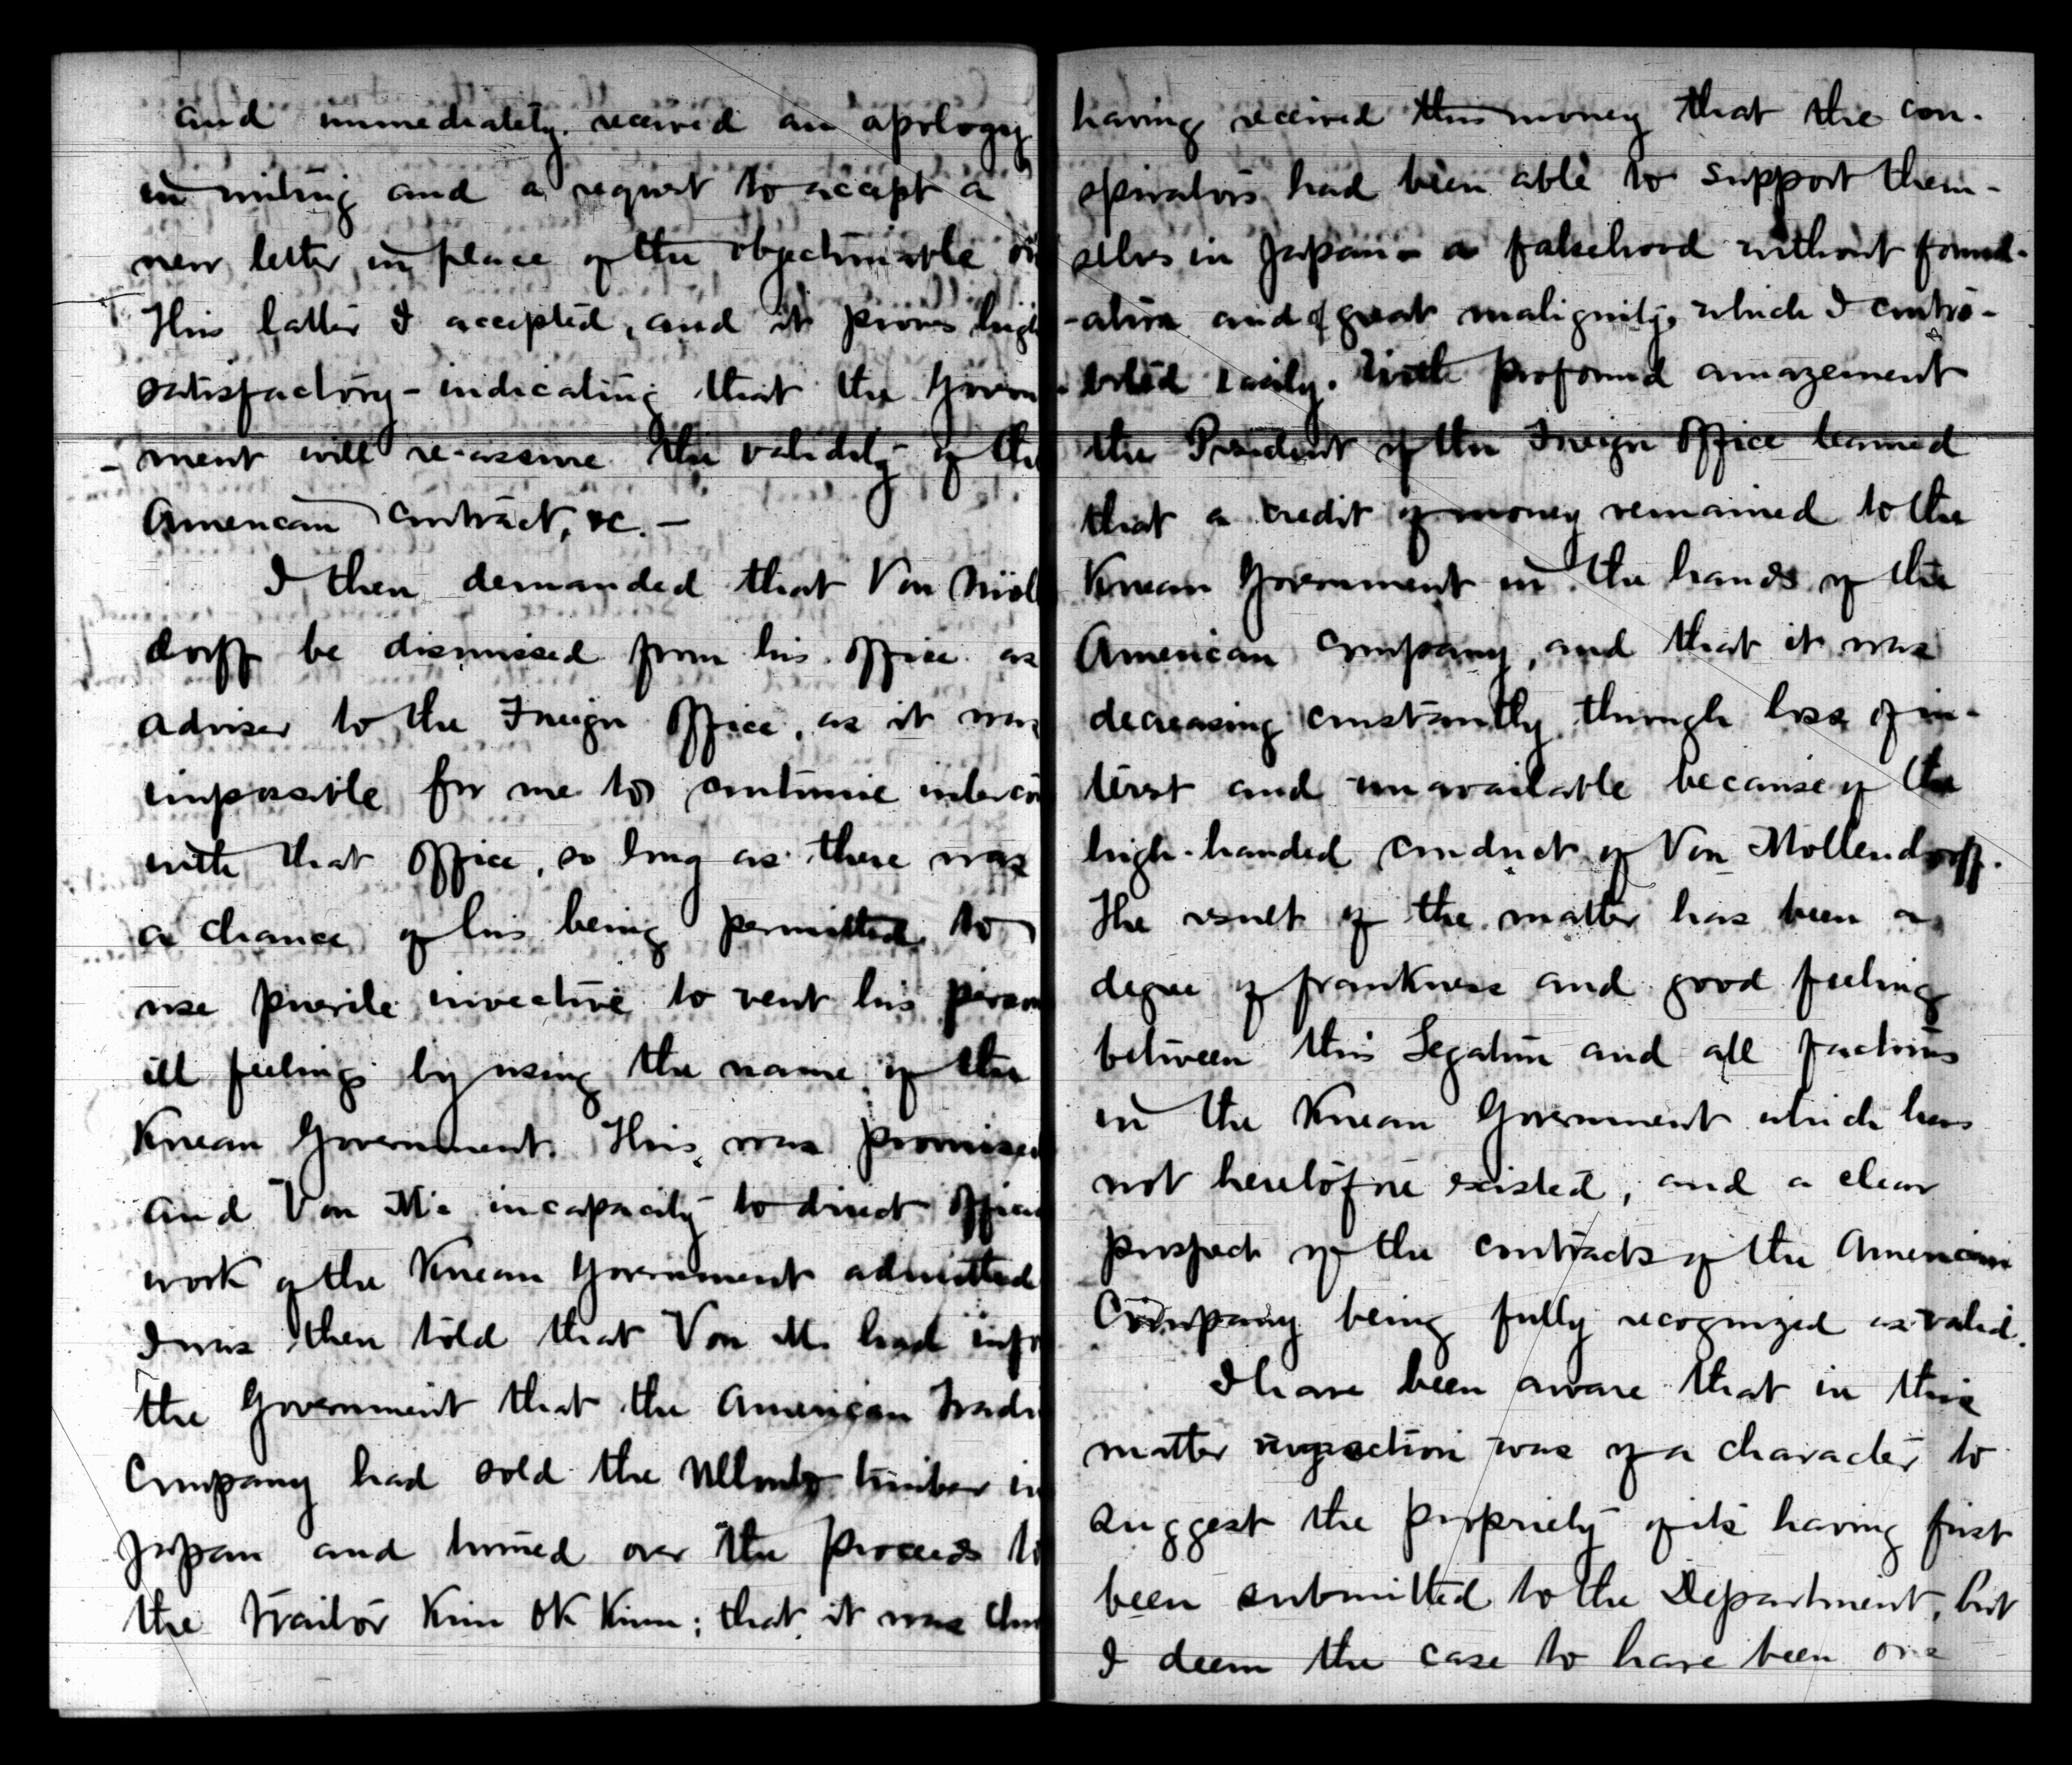 and immediately received an apology
in writing and a request to accept a
new letter in place of the objectionable on
This latter I accepted, and it proves high
satisfactory - indicating that the Govern
- ment will re-assume the validity of the
American contract, &c. -
I then demanded that Von Möl
dorff be dismissed from his office as
adviser to the Foreign Office, as it was
impossible for me to continue interco
with that office, so long as there was
a chance of his being permitted to
use puerile invective to vent his person
ill feelings by using the name of the
Korean Government. This was promised
and Von M's incapacity to direct offici
work of the Korean Government admitted
I was then told that Von M. had info
the Government that the American Tradi
Company had sold the Ullondo timber in
Japan and turned over the proceeds to
the traitor Kim OK Kiun; that it was thro
having received this money that the con-
spirators had been able to support them-
selves in Japan - a falsehood without found-
-ation and of great malignity, which I contro-
-verted easily. With profound amazement
the President of the Foreign Office learned
that a credit of money remained to the
Korean Government in the hands of the
American Company, and that it was
decreasing constantly through loss of in-
terest and unavailable because of the
high-handed conduct of Von Mollendorff.
The result of the matter has been a
degree of frankness and good feeling
between this Legation and all factions
in the Korean Government which has
not heretofore existed, and a clear
prospect of the contracts of the American
Company being fully recognized as valid.
I have been aware that in this
matter my action was of a character to
suggest the propriety of its having first
been submitted to the Department, but
I deem the case to have been one